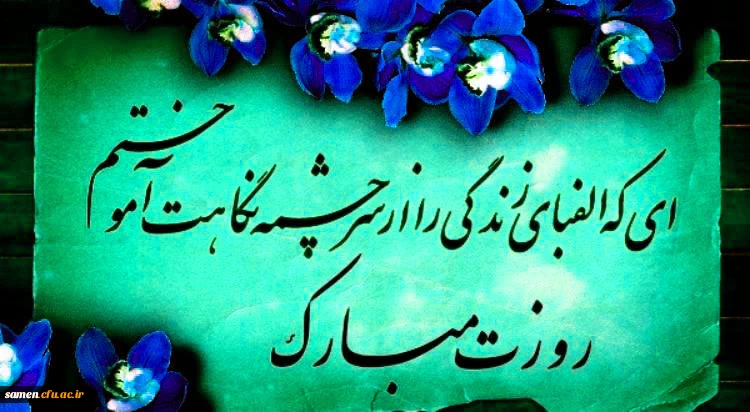 ای که الفبای زندگی را از سرچشمه نگاهت آموختم
روزت مبارک
samen.cfu.ac.ir